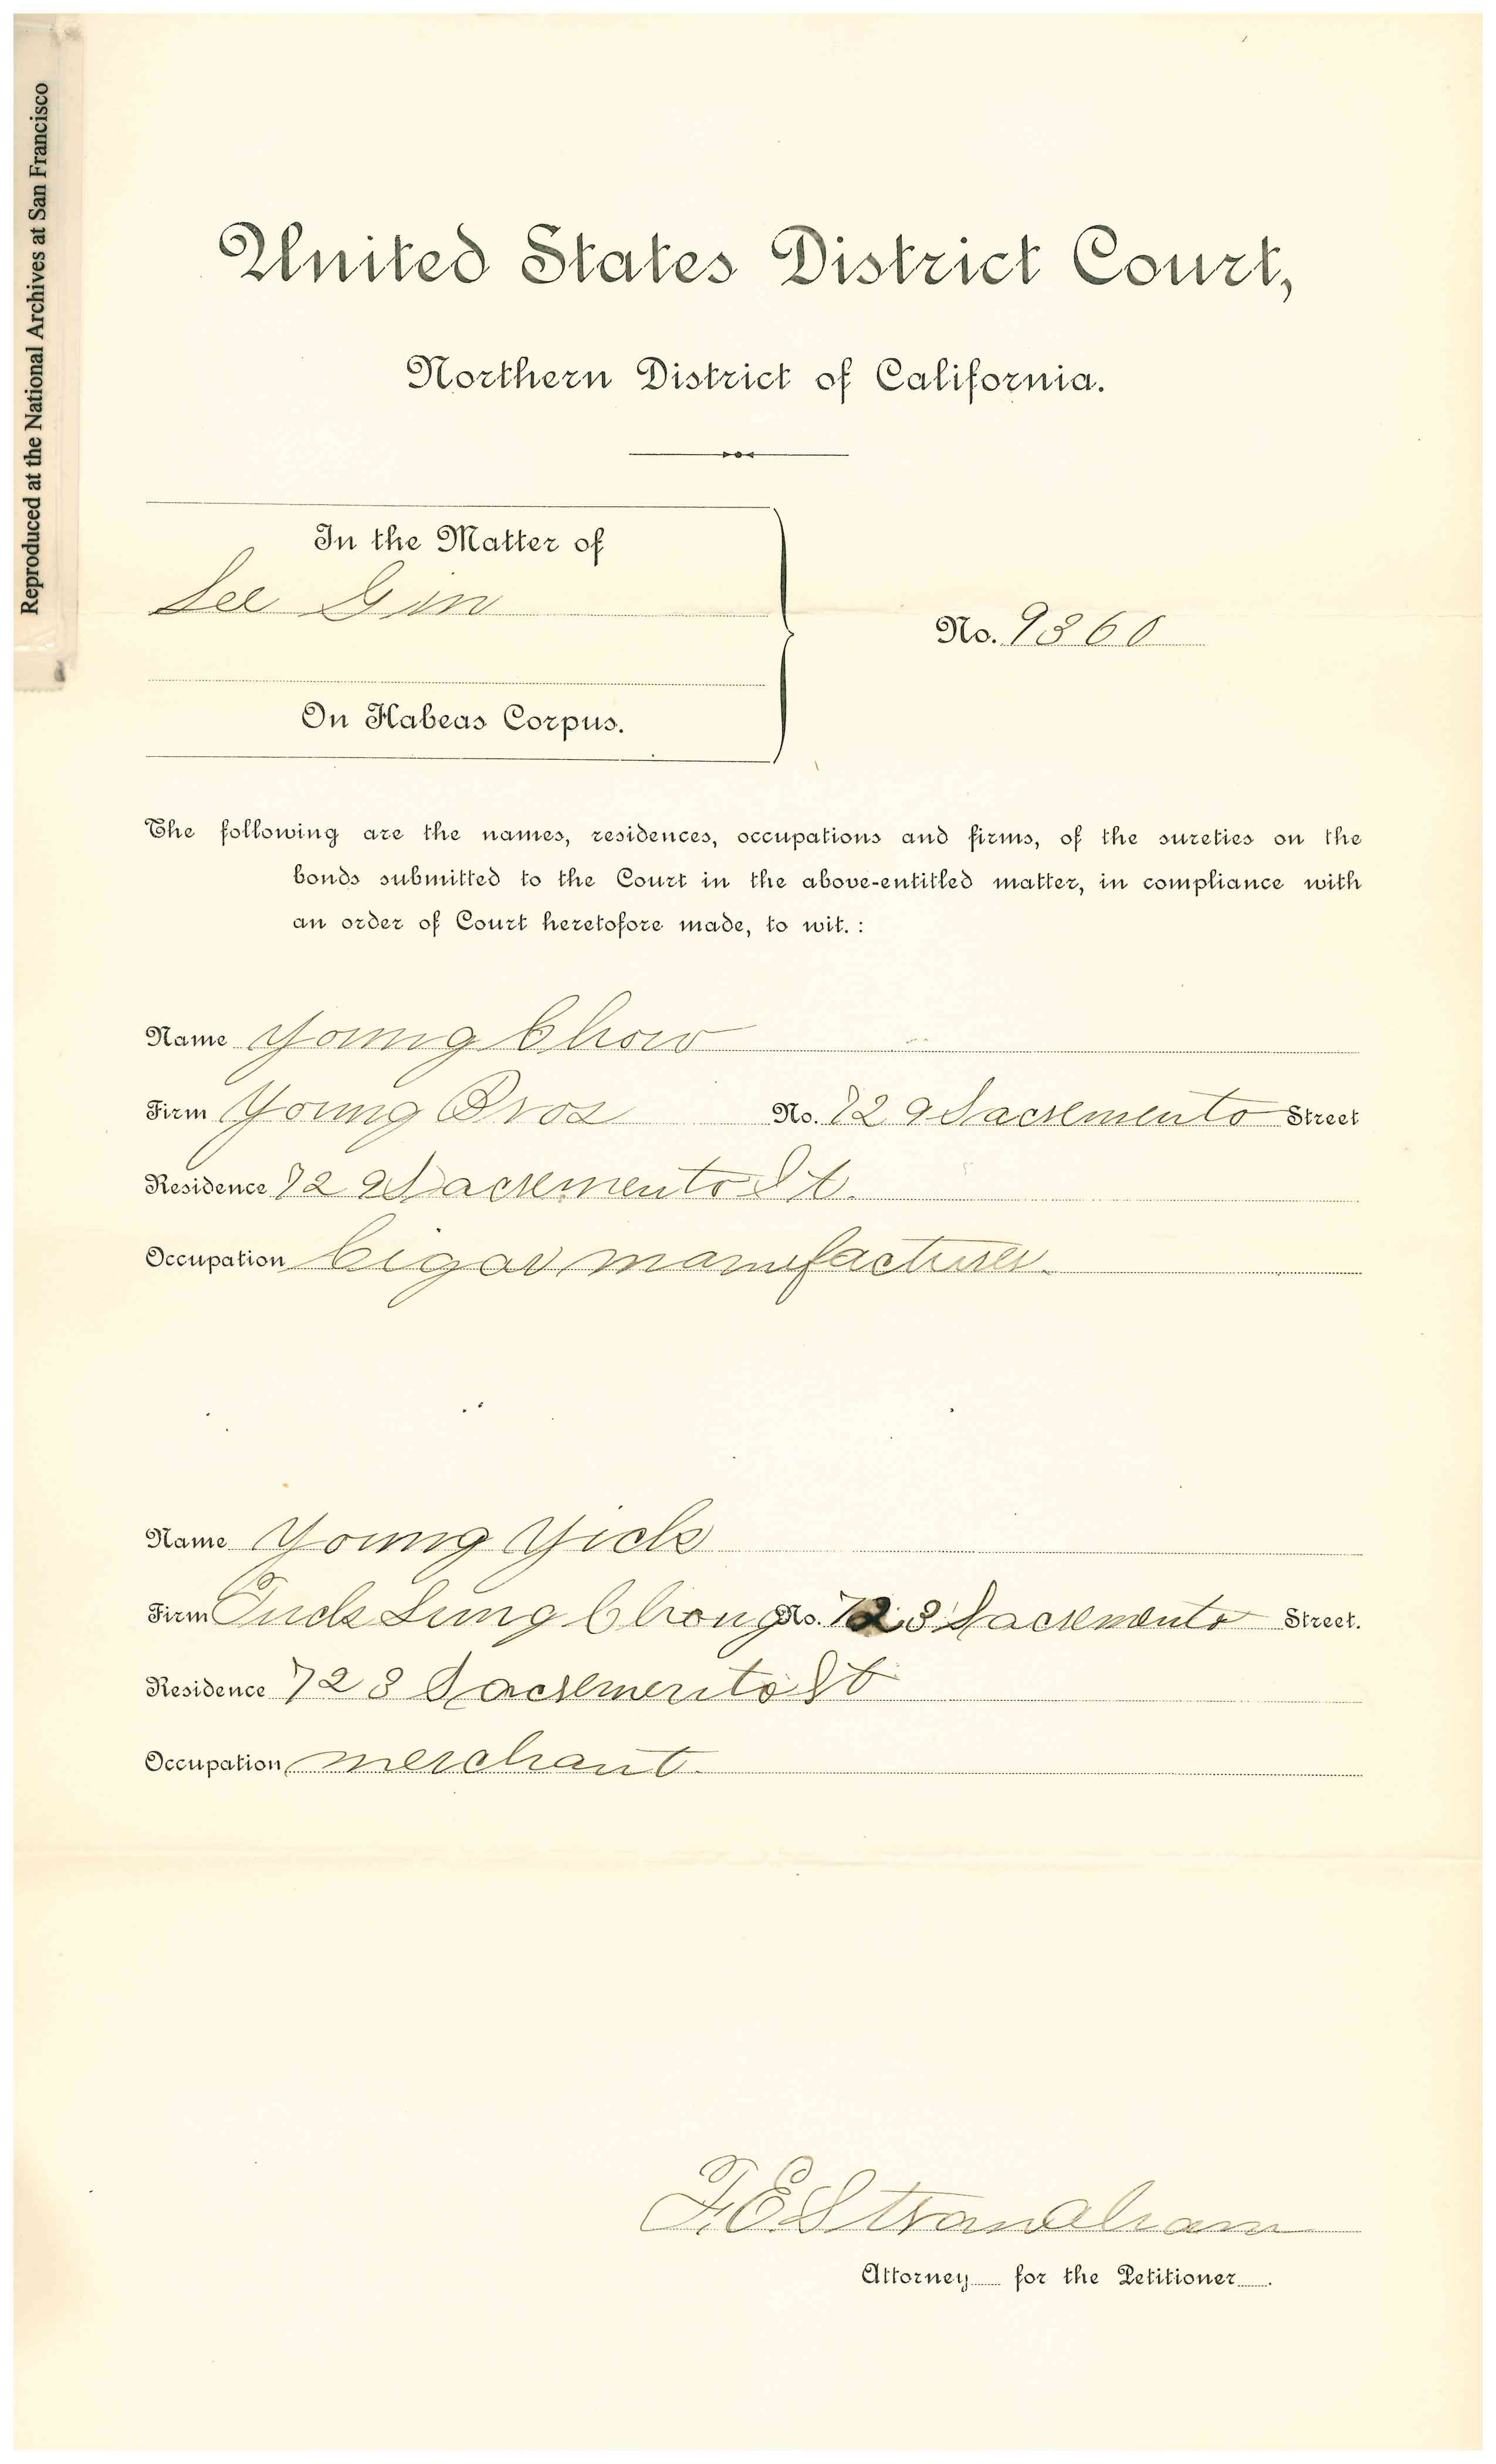 Reproduced at the National Archives at San Francisco
United States District Court,
Northern District of California.
In the Matter of
See Gin
On Habeas Corpus.
No. 9360
The following are the names, residences, occupations and firms, of the sureties on the
bonds submitted to the Court in the above-entitled matter, in compliance with
an order of Court heretofore made, to wit.:
Name Young Chow
Firm Young Bros No. 729 Sacremento Street
Residence 729 Sacremento St.
Occupation Cigar manufacturer.
Name Young Yick
Firm Tuck Lung Chong No. 728 Sacremento Street.
Residence 728 Sacremento St
Occupation merchant.
F. E. Stranaham
Attorney for the Petitioner .